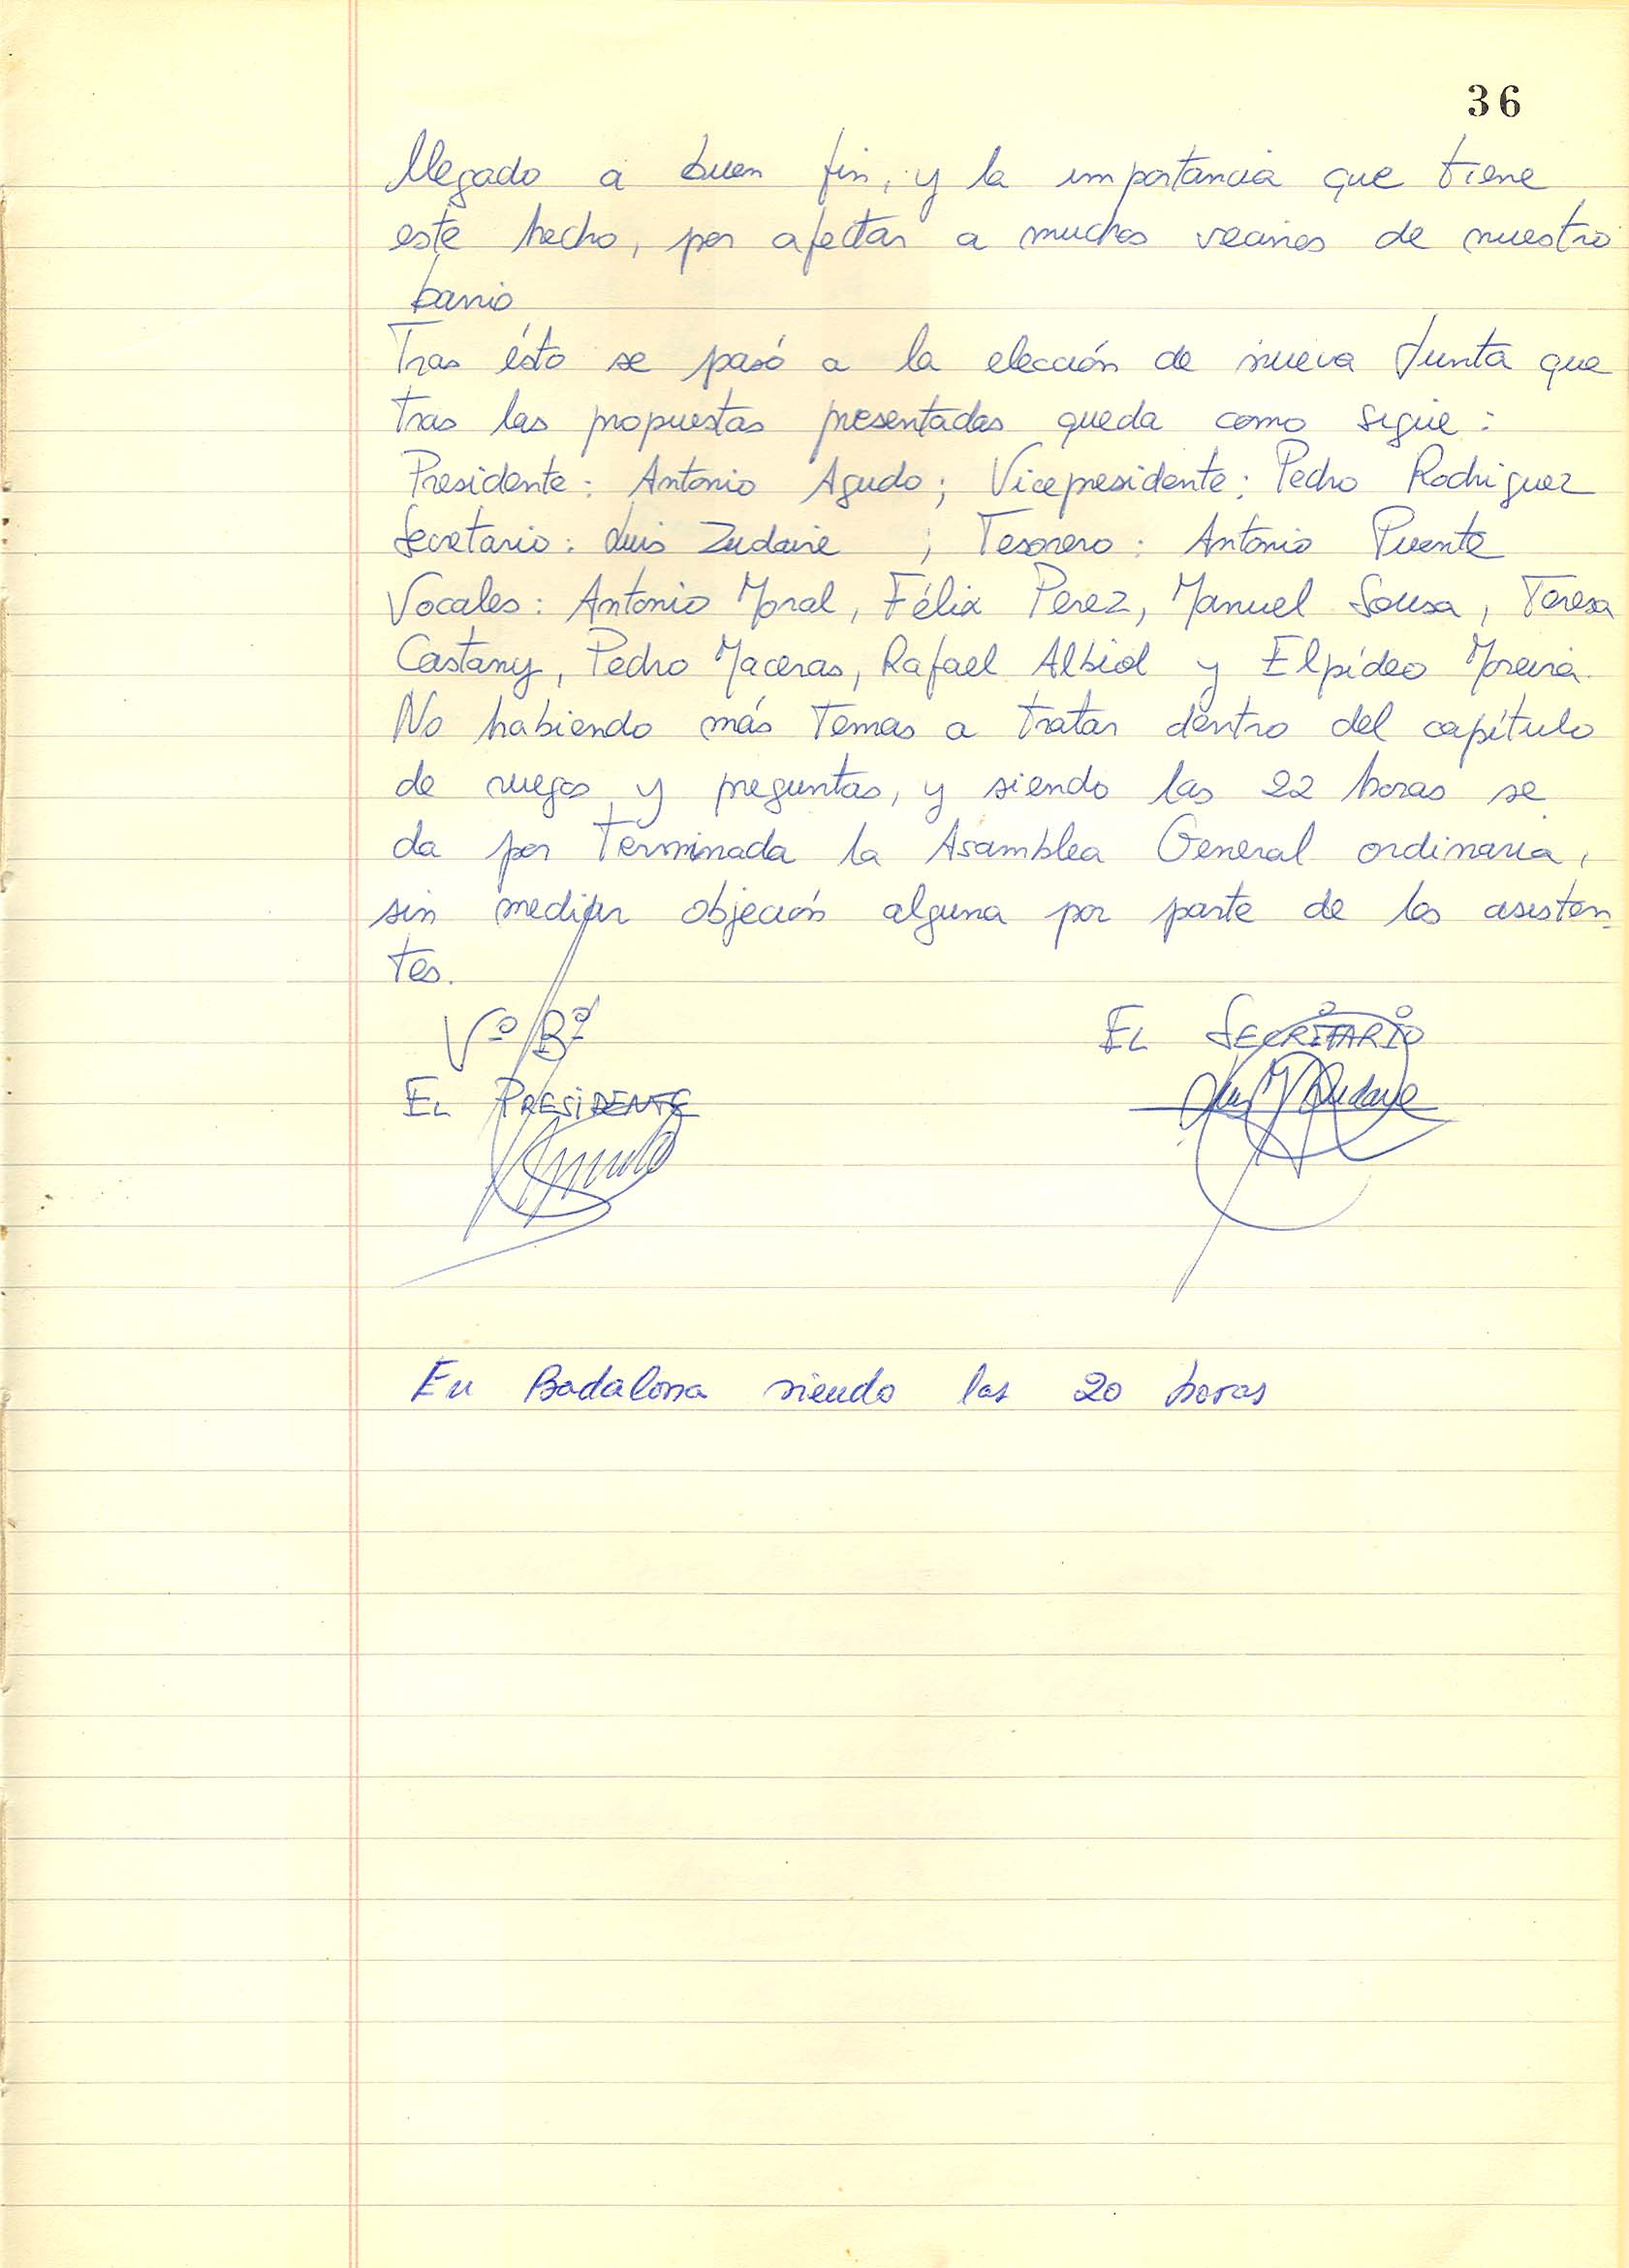 36
llegado a buen fin, y la importancia que tiene
este hecho, por afectar a muchos vecinos de nuestro
barrio
Tras ésto se pasó a la elección de nueva Junta que
tras las propuestas presentadas queda como sigue:
Presidente: Antonio Agudo; Vicepresidente: Pedro Rodriguez
Secretario: Luis Zudaire ; Tesorero: Antonio Puente
Vocales: Antonio Moral, Félix Perez, Manuel Sousa, Teresa
Castany, Pedro Maceras, Rafael Albiol y Elpídeo Moreira.
No habiendo más temas a tratar dentro del capítulo
de ruegos y preguntas, y siendo las 22 horas se
da por terminada la Asamblea General ordinaria,
sin mediar objeción alguna por parte de los asisten-
tes.
Vº Bº
EL SECRETARIO
EL PRESIDENTE
Luis M Zudaire
En Badalona siendo las 20 horas